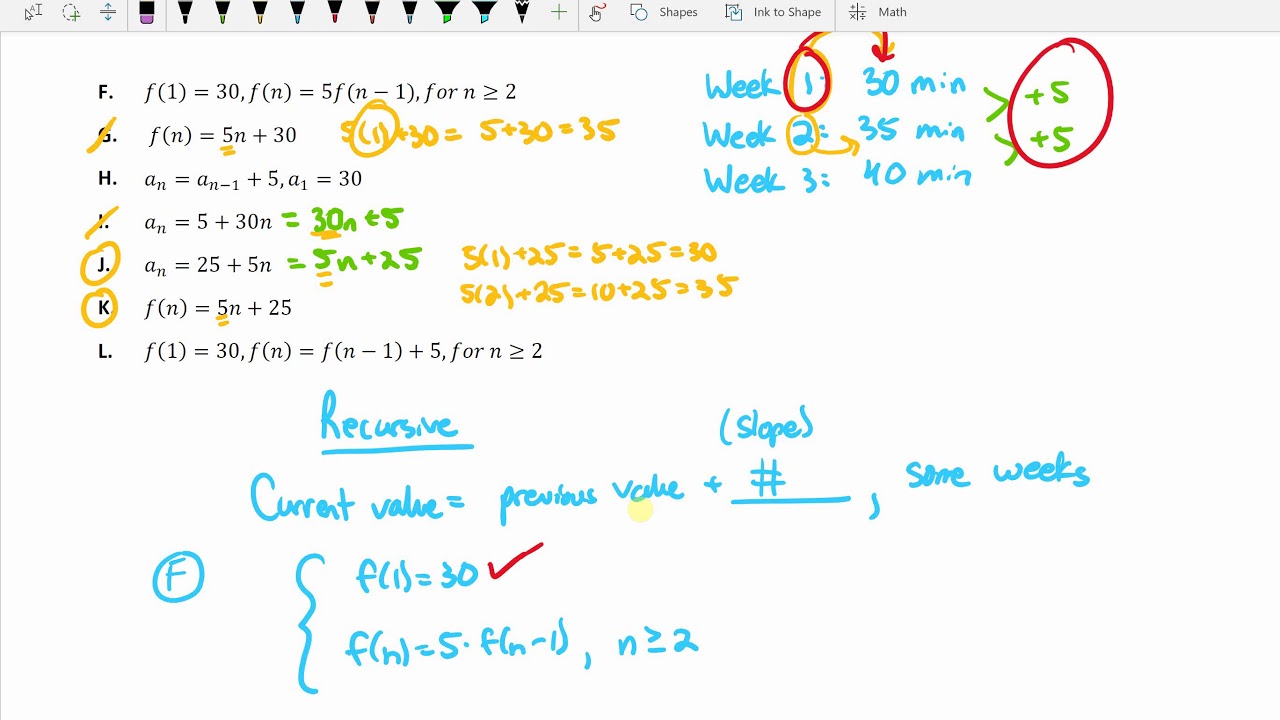 Shapes Ink to Shape Math
F. f(1) = 30, f(n) = 5f(n − 1), for n ≥ 2
G. f(n) = 5n + 30 5(1)+30 = 5+30 = 35
H. aₙ = aₙ₋₁ + 5, a₁ = 30
I. aₙ = 5 + 30n = 30n+5
J. aₙ = 25 + 5n = 5n+25 5(1)+25 = 5+25 = 30
5(2)+25 = 10+25 = 35
K. f(n) = 5n + 25
L. f(1) = 30, f(n) = f(n − 1) + 5, for n ≥ 2
Week 1: 30 min
+5
Week 2: 35 min
+5
Week 3: 40 min
Recursive
(slope)
Current value = previous value + #, some weeks
F f(1) = 30 ✓
f(n) = 5 · f(n−1), n ≥ 2